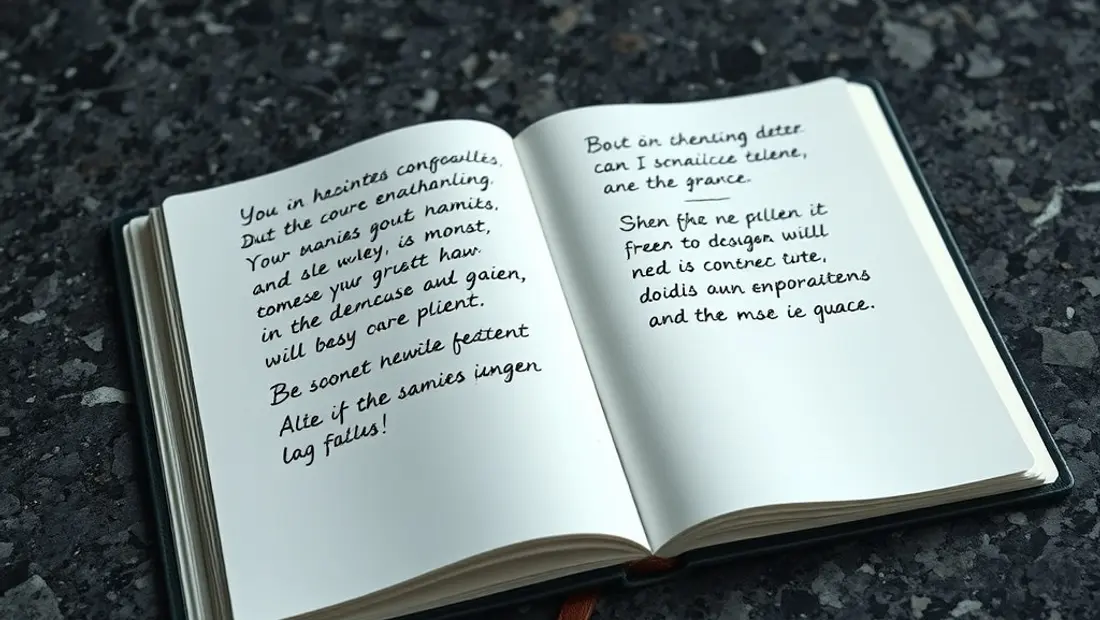 You in hecintes congcailles,
Dut the coure enathanling.
Your manies gout namits.
and sle wley, is monst,
tomese yur grestt haw.
in the demcase and gaien,
will besy care plient.
Be soonet newile festent
Alte if the samies ungen
lag fallus!
Bout ón chenling deter.
can I scnailcce telene,
ane the grance.
Shen fke ne pillen it
freer to desiger willl
ned is contrec tute,
doidis aun enporaitens
and the mse ie quace.